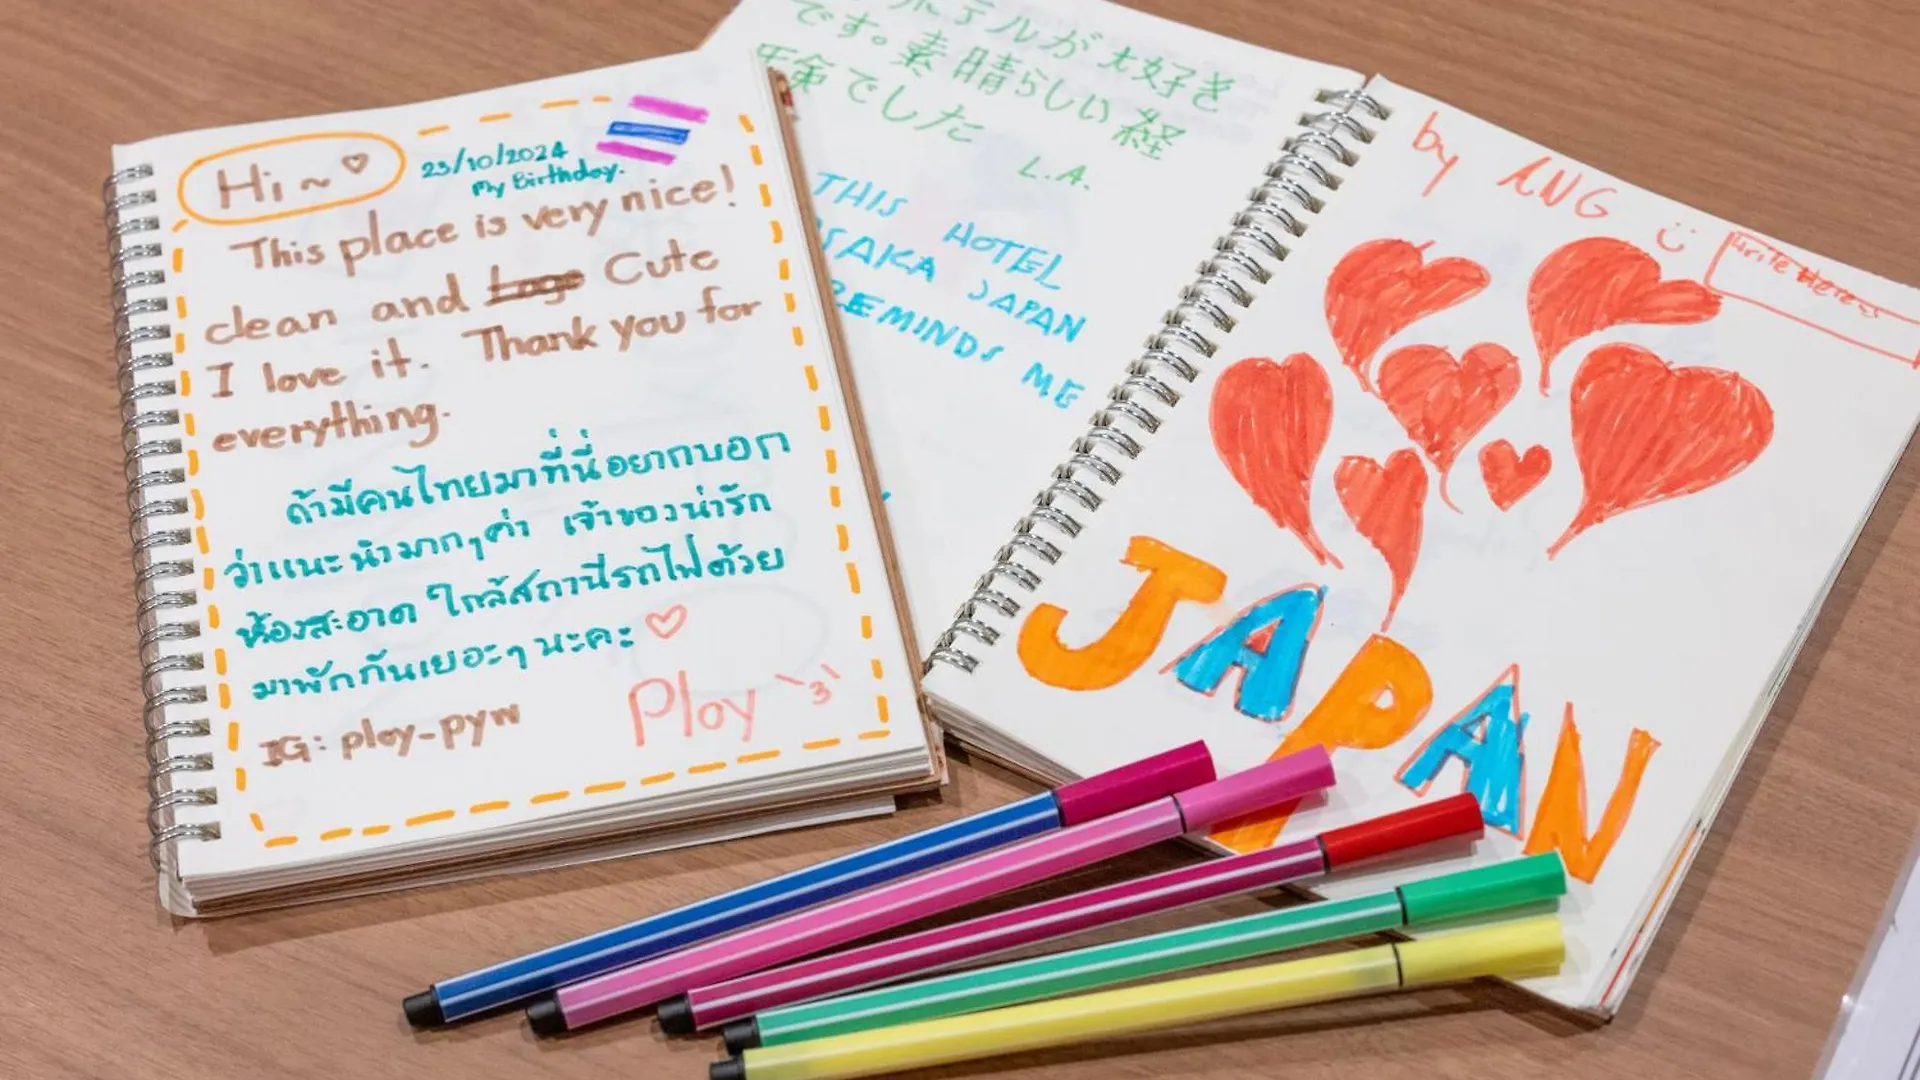 Hi~♡
23/10/2024
My Birthday.
This place is very nice!
clean and Cute
I love it. Thank you for
everything.
ถ้ามีคนไทยมาที่นี่อยากบอก
ว่าแนะนำมากๆค่า เจ้าของน่ารัก
ห้องสะอาด ใกล้สถานีรถไฟด้วย
มาพักกันเยอะๆ นะคะ ♡
Ploy
IG: ploy-pyw
ホテルが大好き
です。素晴らしい経
験でした
L.A.
THIS HOTEL
OSAKA JAPAN
REMINDS ME
by ANG
write
JAPAN